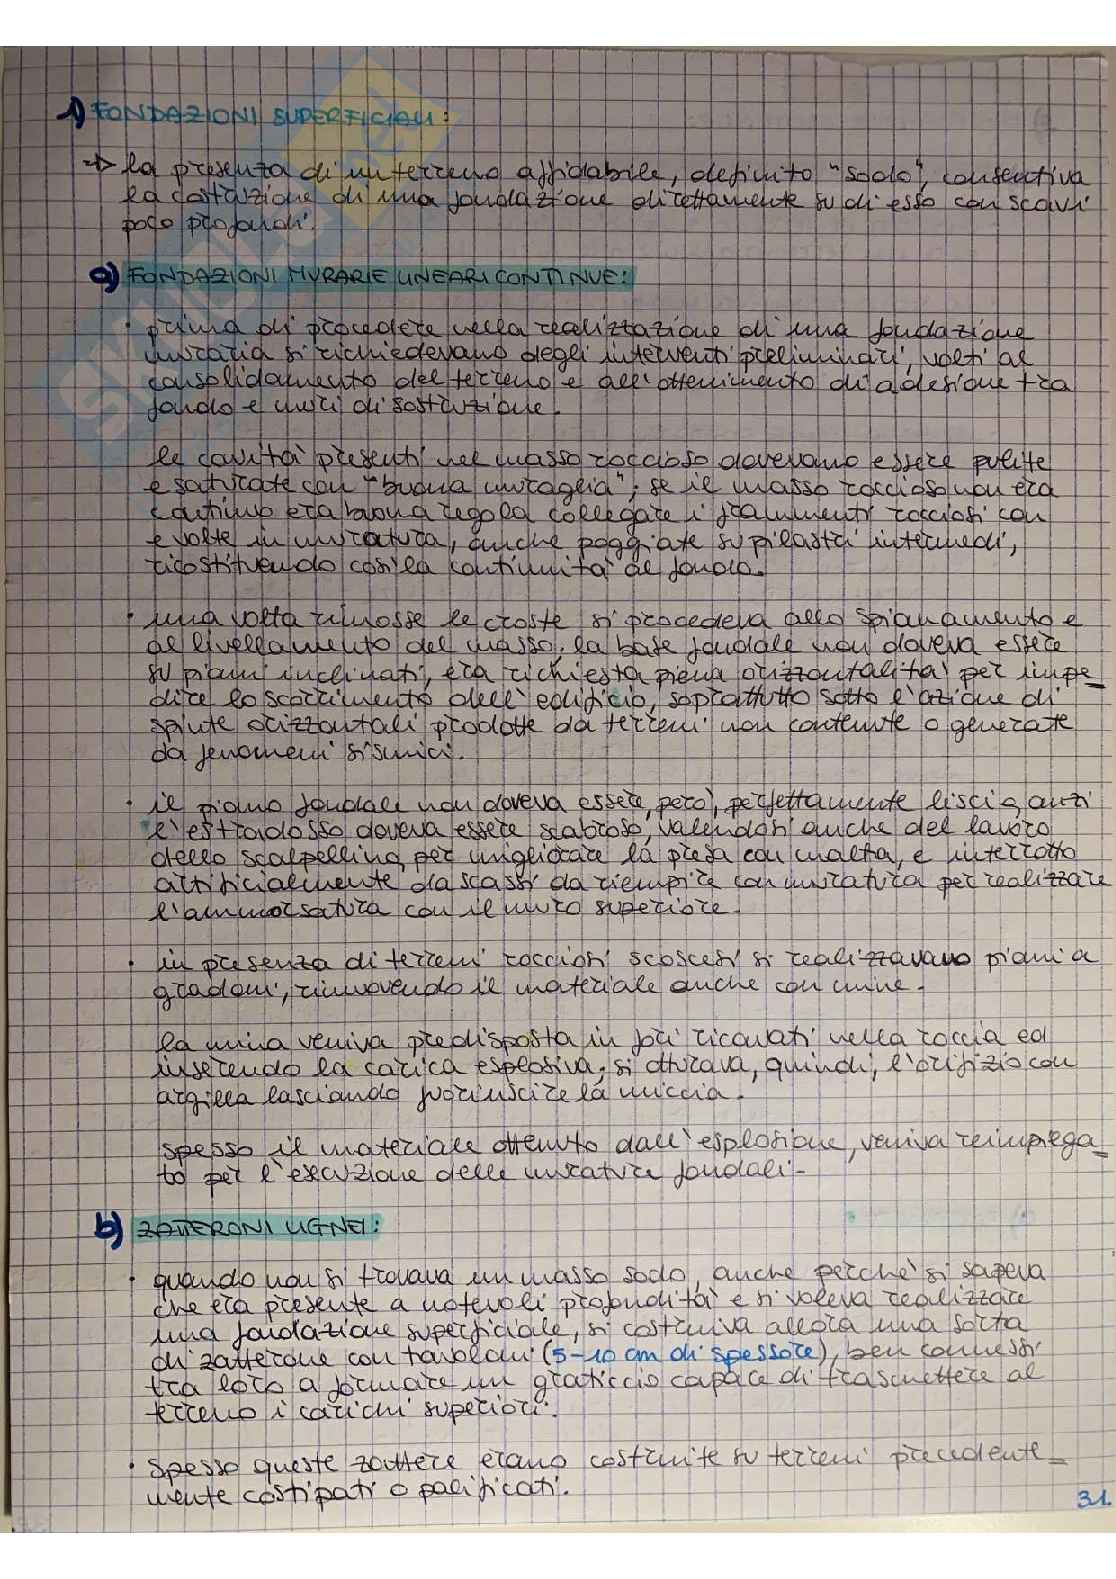 1) FONDAZIONI SUPERFICIALI:
→ la presenza di un terreno affidabile, definito "sodo", consentiva
la costruzione di una fondazione direttamente su di esso con scavi
poco profondi.
a) FONDAZIONI MURARIE LINEARI CONTINUE:
• prima di procedere nella realizzazione di una fondazione
muraria si richiedevano degli interventi preliminari, volti al
consolidamento del terreno e all'ottenimento di adesione tra
fondo e muri di sostruzione.
le cavità presenti nel masso roccioso dovevano essere pulite
e saturate con "buona muraglia"; se il masso roccioso non era
continuo era buona regola collegare i frammenti rocciosi con
e volte in muratura, anche poggiate su pilastri intermedi,
ricostituendo così la continuità al fondo.
• una volta rimosse le croste si procedeva allo spianamento e
al livellamento del masso; la base fondale non doveva essere
su piani inclinati, era richiesta piena orizzontalità per impe_
dire lo scorrimento dell'edificio, soprattutto sotto l'azione di
spinte orizzontali prodotte da terreni non contenute o generate
da fenomeni sismici.
• il piano fondale non doveva essere, però, perfettamente liscio, anzi
l'estradosso doveva essere scabroso, valendosi anche del lavoro
dello scalpellino, per migliorare la presa con malta, e interrotto
artificialmente da scassi da riempire con muratura per realizzare
l'ammorsatura con il muro superiore.
• in presenza di terreni rocciosi scoscesi si realizzavano piani a
gradoni, rimuovendo il materiale anche con mine.
la mina veniva predisposta in fori ricavati nella roccia ed
inserendo la carica esplosiva; si otturava, quindi, l'orifizio con
argilla lasciando fuoriuscire la miccia.
spesso il materiale ottenuto dall'esplosione, veniva reimpiega_
to per l'esecuzione delle murature fondali.
b) ZATTERONI LIGNEI:
• quando non si trovava un masso sodo, anche perché si sapeva
che era presente a notevoli profondità e si voleva realizzare
una fondazione superficiale, si costruiva allora una sorta
di zatterone con tavoloni (5-10 cm di spessore), ben connessi
tra loro a formare un graticcio capace di trasmettere al
terreno i carichi superiori.
• spesso queste zattere erano costruite su terreni precedente_
mente costipati o palificati.
31.